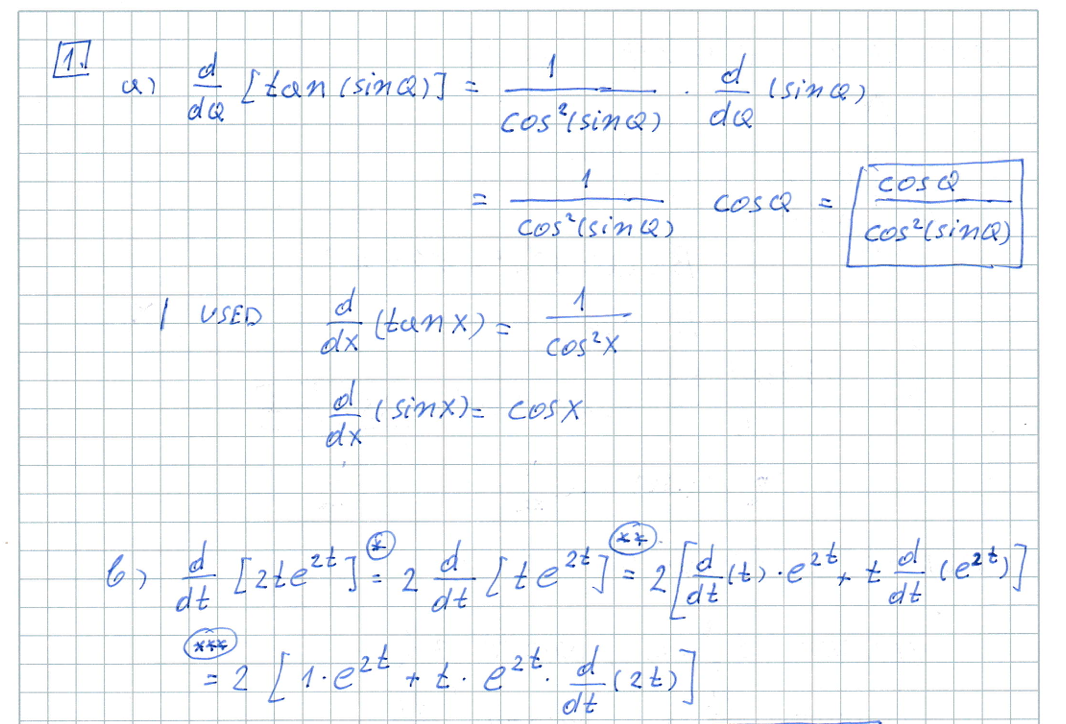 1.
a) d/dQ [tan(sinQ)] = 1/cos²(sinQ) · d/dQ (sinQ)
= 1/cos²(sinQ) cosQ = cosQ/cos²(sinQ)
I USED d/dx (tanx) = 1/cos²x
d/dx (sinx) = cosx
b) d/dt [2te^{2t}] =^{*} 2 d/dt [te^{2t}] =^{**} 2[d/dt (t) · e^{2t} + t d/dt (e^{2t})]
=^{***} 2 [1·e^{2t} + t · e^{2t} · d/dt (2t)]